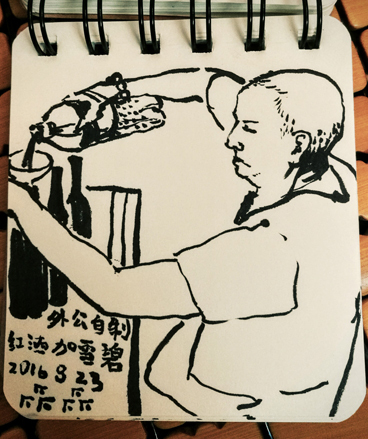 外公自制
红酒加雪碧
2016 8 23